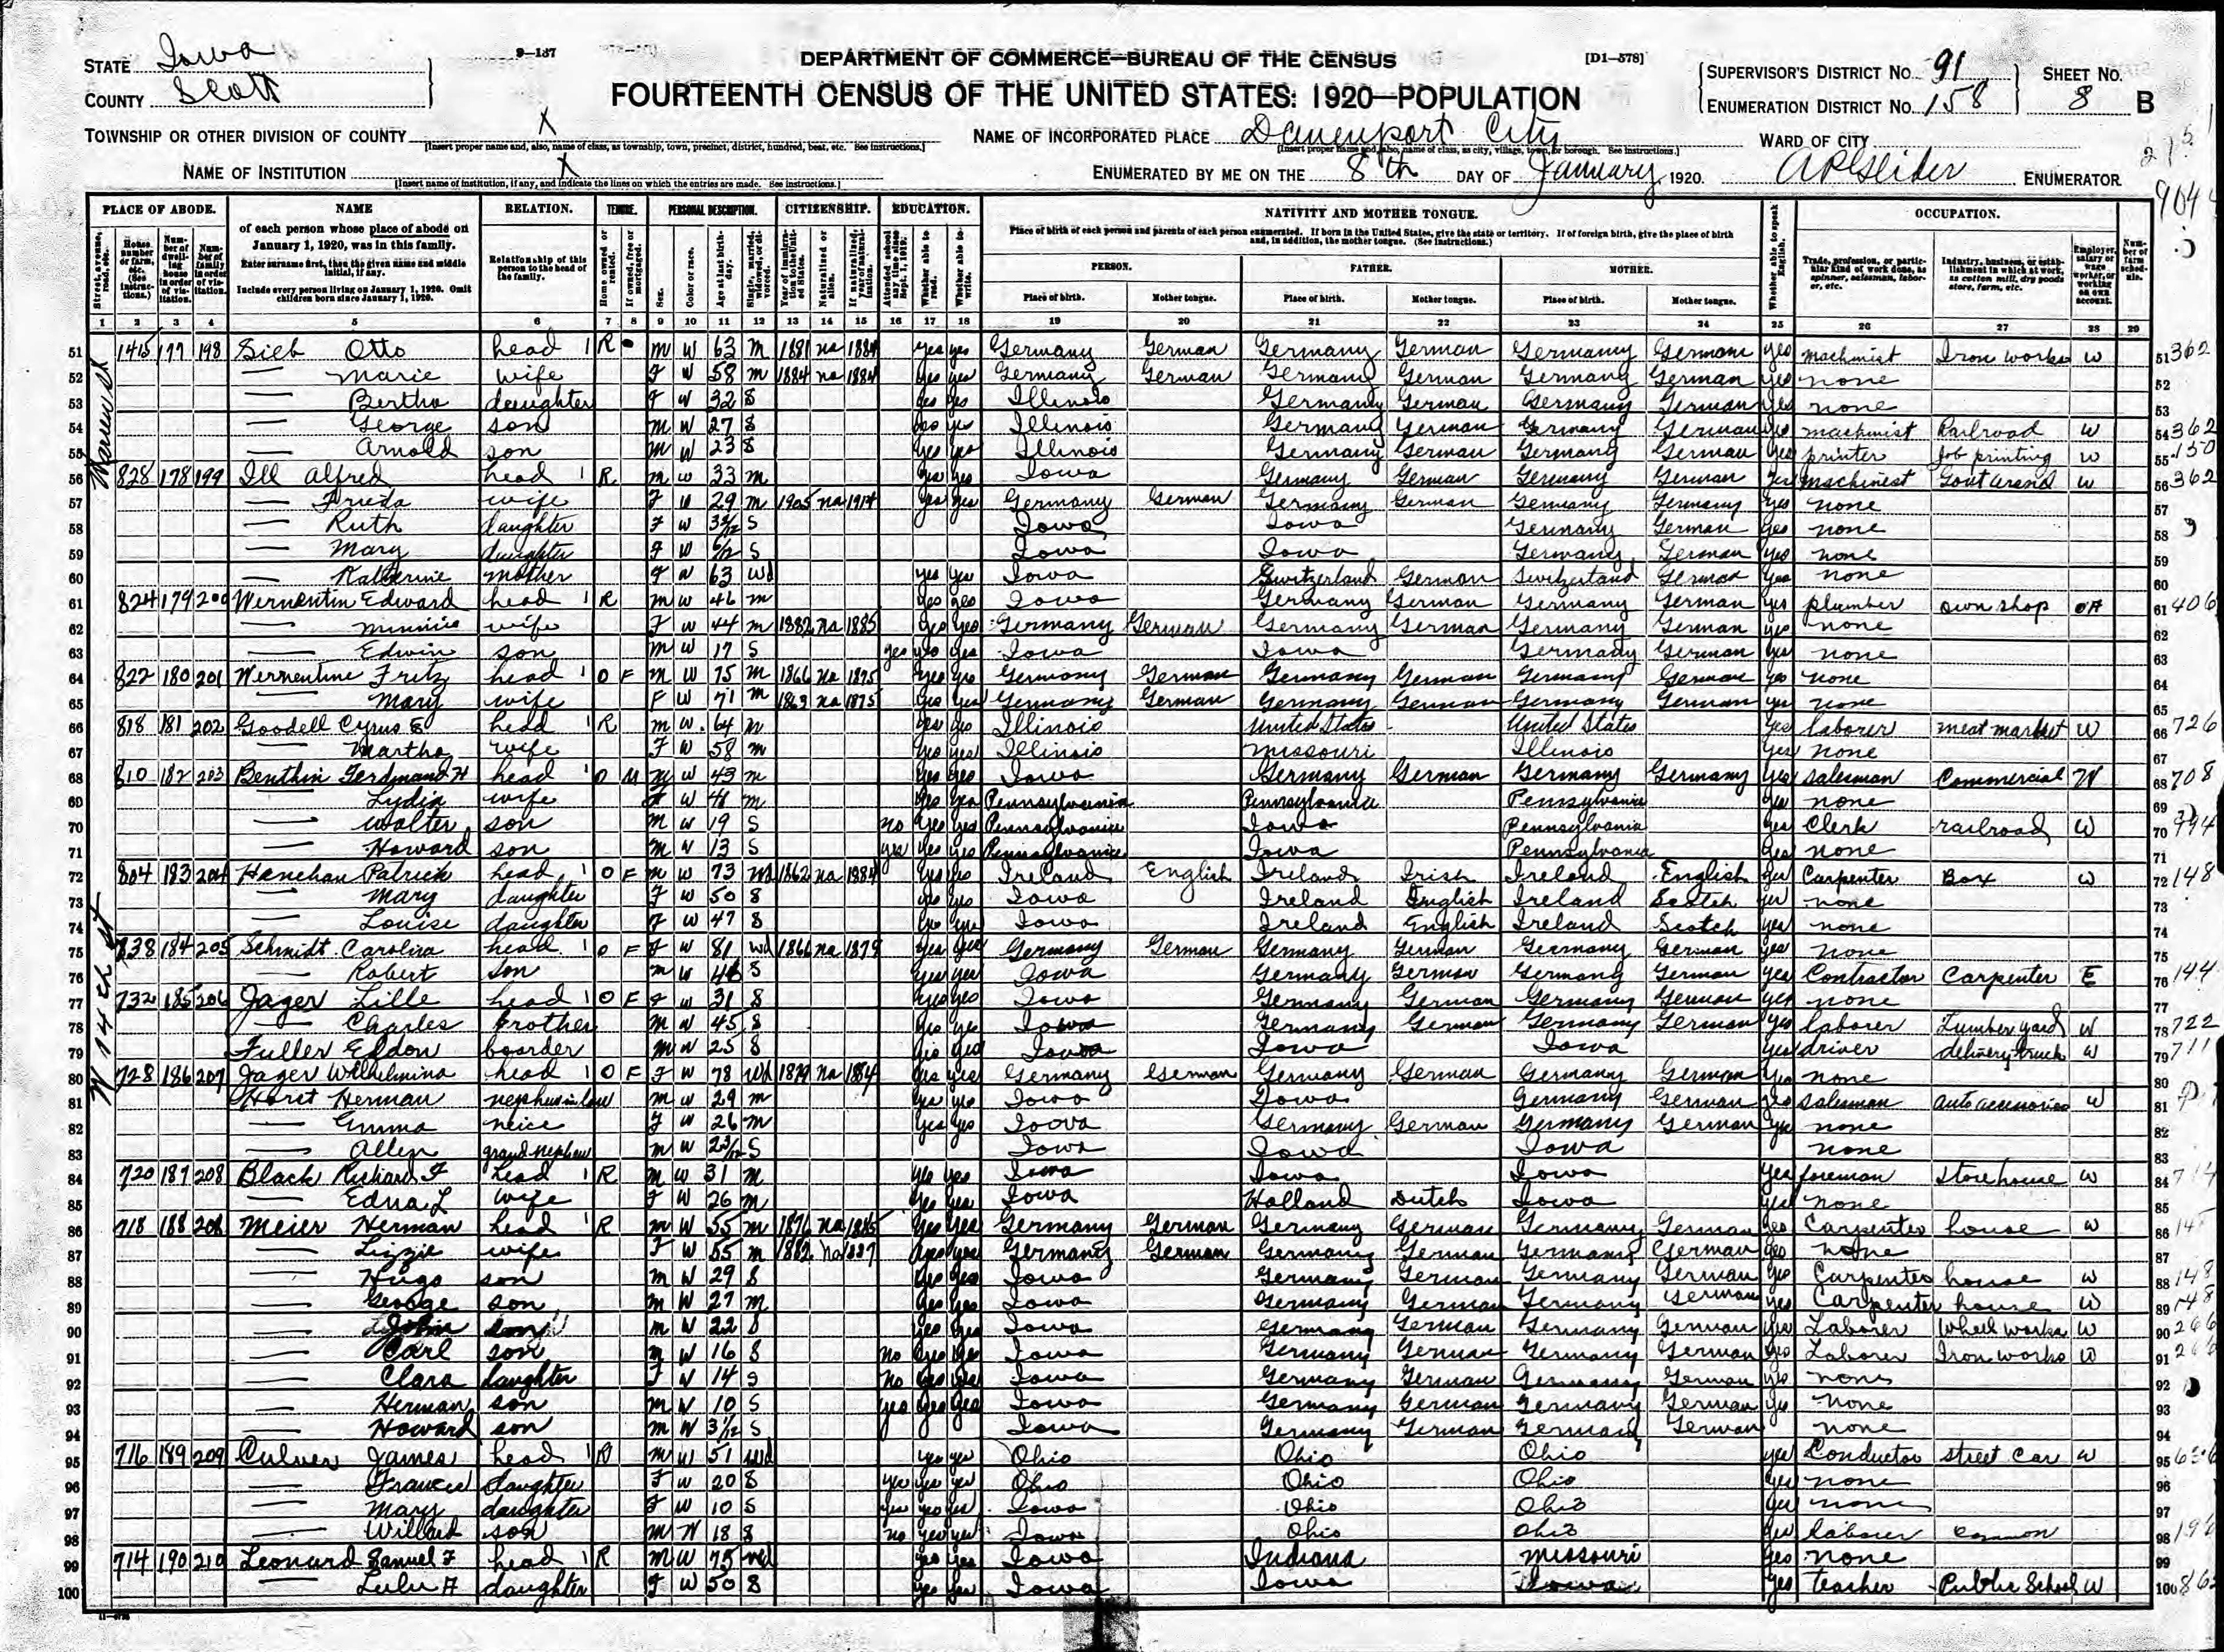 STATE Iowa
COUNTY Scott
9—137
DEPARTMENT OF COMMERCE—BUREAU OF THE CENSUS
[D1—578]
FOURTEENTH CENSUS OF THE UNITED STATES: 1920—POPULATION
SUPERVISOR'S DISTRICT No. 91
ENUMERATION DISTRICT No. 158
SHEET No. 8 B
TOWNSHIP OR OTHER DIVISION OF COUNTY X
[Insert proper name and, also, name of class, as township, town, precinct, district, hundred, beat, etc. See instructions.]
NAME OF INCORPORATED PLACE Davenport City
[Insert proper name and, also, name of class, as city, village, town, or borough. See instructions.]
WARD OF CITY
NAME OF INSTITUTION X
[Insert name of institution, if any, and indicate the lines on which the entries are made. See instructions.]
ENUMERATED BY ME ON THE 8th DAY OF January, 1920. ENUMERATOR
PLACE OF ABODE. NAME RELATION. TENURE. PERSONAL DESCRIPTION. CITIZENSHIP. EDUCATION. NATIVITY AND MOTHER TONGUE. OCCUPATION.
of each person whose place of abode on January 1, 1920, was in this family.
Enter surname first, then the given name and middle initial, if any.
Include every person living on January 1, 1920. Omit children born since January 1, 1920.
Relationship of this person to the head of the family.
Place of birth of each person and parents of each person enumerated. If born in the United States, give the state or territory. If of foreign birth, give the place of birth and, in addition, the mother tongue. (See instructions.)
PERSON. FATHER. MOTHER.
Place of birth. Mother tongue. Place of birth. Mother tongue. Place of birth. Mother tongue.
Whether able to speak English.
1 2 3 4 5 6 7 8 9 10 11 12 13 14 15 16 17 18 19 20 21 22 23 24 25 26 27 28 29
51 1415 177 198 Sieb Otto head R m W 63 m 1881 na 1884 yes yes Germany German Germany German Germany German yes machinist Iron works w 362
52 Marie wife F W 58 m 1884 na 1884 yes yes Germany German Germany German Germany German yes none
53 Bertha daughter F W 32 S yes yes Illinois Germany German Germany German yes none
54 George son m W 27 S yes Illinois Germany German Germany German machinist Railroad w 362
55 Arnold son m W 23 S yes yes Illinois Germany German Germany German yes printer Job printing w 150
56 828 178 199 Ill Alfred head R m w 33 m yes yes Iowa Germany German Germany German yes machinist w 362
57 Frieda wife F W 29 m 1905 na 1914 yes yes Germany German Germany German Germany Germany yes none
58 Ruth daughter F W S Iowa Iowa Germany German yes none
59 Mary daughter F W S Iowa Iowa Germany German yes none
60 Katherine mother F W 63 wd yes yes Iowa Switzerland German Switzerland German yes none
61 824 179 200 Wernentin Edward head R m W 46 m yes yes Iowa Germany German Germany German yes plumber own shop OA 406
62 Minnie wife F W 44 m 1882 na 1885 yes yes Germany German Germany German Germany German yes none
63 Edwin son m W 17 S yes yes yes Iowa Iowa Germany German yes none
64 822 180 201 Wernentine Fritz head O F m W 75 m 1866 na 1875 yes yes Germany German Germany German Germany German yes none
65 Mary wife F W 71 m 1869 na 1875 yes yes Germany German Germany German Germany German yes none
66 818 181 202 Goodell Cyrus E head R m W 64 m yes yes Illinois United States United States yes laborer meat market W 726
67 Martha wife F W 58 m yes yes Illinois Missouri Illinois yes none
68 810 182 203 Benthin Ferdinand H head O M m W 43 m yes yes Iowa Germany German Germany Germany yes salesman Commercial W 708
69 Lydia wife F W 41 m yes yes Pennsylvania Pennsylvania Pennsylvania yes none
70 Walter son m W 19 S no yes yes Pennsylvania Iowa Pennsylvania yes Clerk railroad W
71 Howard son m W 13 S yes yes yes Pennsylvania Iowa Pennsylvania yes none
72 804 183 204 Hanehan Patrick head O F m W 73 wd 1862 na 1884 yes yes Ireland English Ireland Irish Ireland English yes Carpenter Box w 148
73 Mary daughter F W 50 S yes yes Iowa Ireland English Ireland Scotch yes none
74 Louise daughter F W 47 S yes yes Iowa Ireland English Ireland Scotch yes none
75 838 184 205 Schmidt Carolina head O F F W 81 wd 1866 na 1879 yes yes Germany German Germany German Germany German yes none
76 Robert son m W 46 S yes yes Iowa Germany German Germany German yes Contractor Carpenter E 144
77 732 185 206 Jager Lille head O F F W 31 S yes yes Iowa Germany German Germany German yes none
78 Charles brother m W 45 S yes yes Iowa Germany German Germany German yes laborer Lumber yard W 722
79 Fuller Eldon boarder m W 25 S yes yes Iowa Iowa Iowa yes driver delivery truck w 711
80 728 186 207 Jager Wilhelmina head O F F W 78 wd 1879 na 1884 yes yes Germany German Germany German Germany German yes none
81 Horst Herman nephew in law m w 29 m yes yes Iowa Iowa Germany German yes salesman auto accessories W
82 Emma neice F W 26 m yes yes Iowa Germany German Germany German yes none
83 Allen grand nephew m W S Iowa Iowa Iowa none
84 720 187 208 Black Richard F head R m W 31 m yes yes Iowa Iowa Iowa yes foreman Storehouse w 714
85 Edna L wife F W 26 m yes yes Iowa Holland Dutch Iowa yes none
86 718 188 208 Meier Herman head R m W 55 m 1876 na 1885 yes yes Germany German Germany German Germany German yes Carpenter house w
87 Lizzie wife F W 55 m 1882 na 1887 yes yes Germany German Germany German Germany German yes none
88 Hugo son m W 29 S yes yes Iowa Germany German Germany German yes Carpenter house w 148
89 George son m W 27 m yes yes Iowa Germany German Germany German yes Carpenter house W 148
90 John son m W 22 S yes yes Iowa Germany German Germany German yes Laborer Wheel works W 266
91 Carl son m W 16 S no yes yes Iowa Germany German Germany German yes Laborer Iron works W
92 Clara daughter F W 14 S no yes yes Iowa Germany German Germany German yes none
93 Herman son m W 10 S yes yes yes Iowa Germany German Germany German yes none
94 Howard son m W S Iowa Germany German Germany German none
95 716 189 209 Culver James head R m W 51 wd yes yes Ohio Ohio Ohio yes Conductor street car w
96 Frances daughter F W 20 S yes yes yes Ohio Ohio Ohio yes none
97 Mary daughter F W 10 S yes yes yes Iowa Ohio Ohio yes none
98 Willard son m W 18 S no yes yes Iowa Ohio Ohio yes laborer Common
99 714 190 210 Leonard Samuel F head R m W 75 wd yes yes Iowa Indiana Missouri yes none
100 Lulu A daughter F W 50 S yes yes Iowa Iowa Iowa yes teacher Public School W
W 14th St